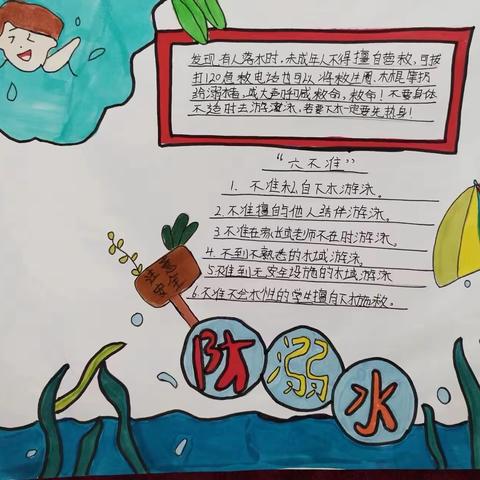 发现有人落水时,未成年人不得擅自营救,可拨
打120急救电话也可以将救生圈、木棍等扔
给溺水者,或大声呼喊救命,救命!不要身体
不适时去游泳,若要下水一定要先热身!
“六不准”
1、不准私自下水游泳。
2.不准擅自与他人结伴游泳。
3不准在家长或老师不在时游泳。
4.不到不熟悉的水域游泳
5不准到无安全设施的水域游泳
6.不准不会水性的学生擅自下水施救。
注意
安全
防溺水